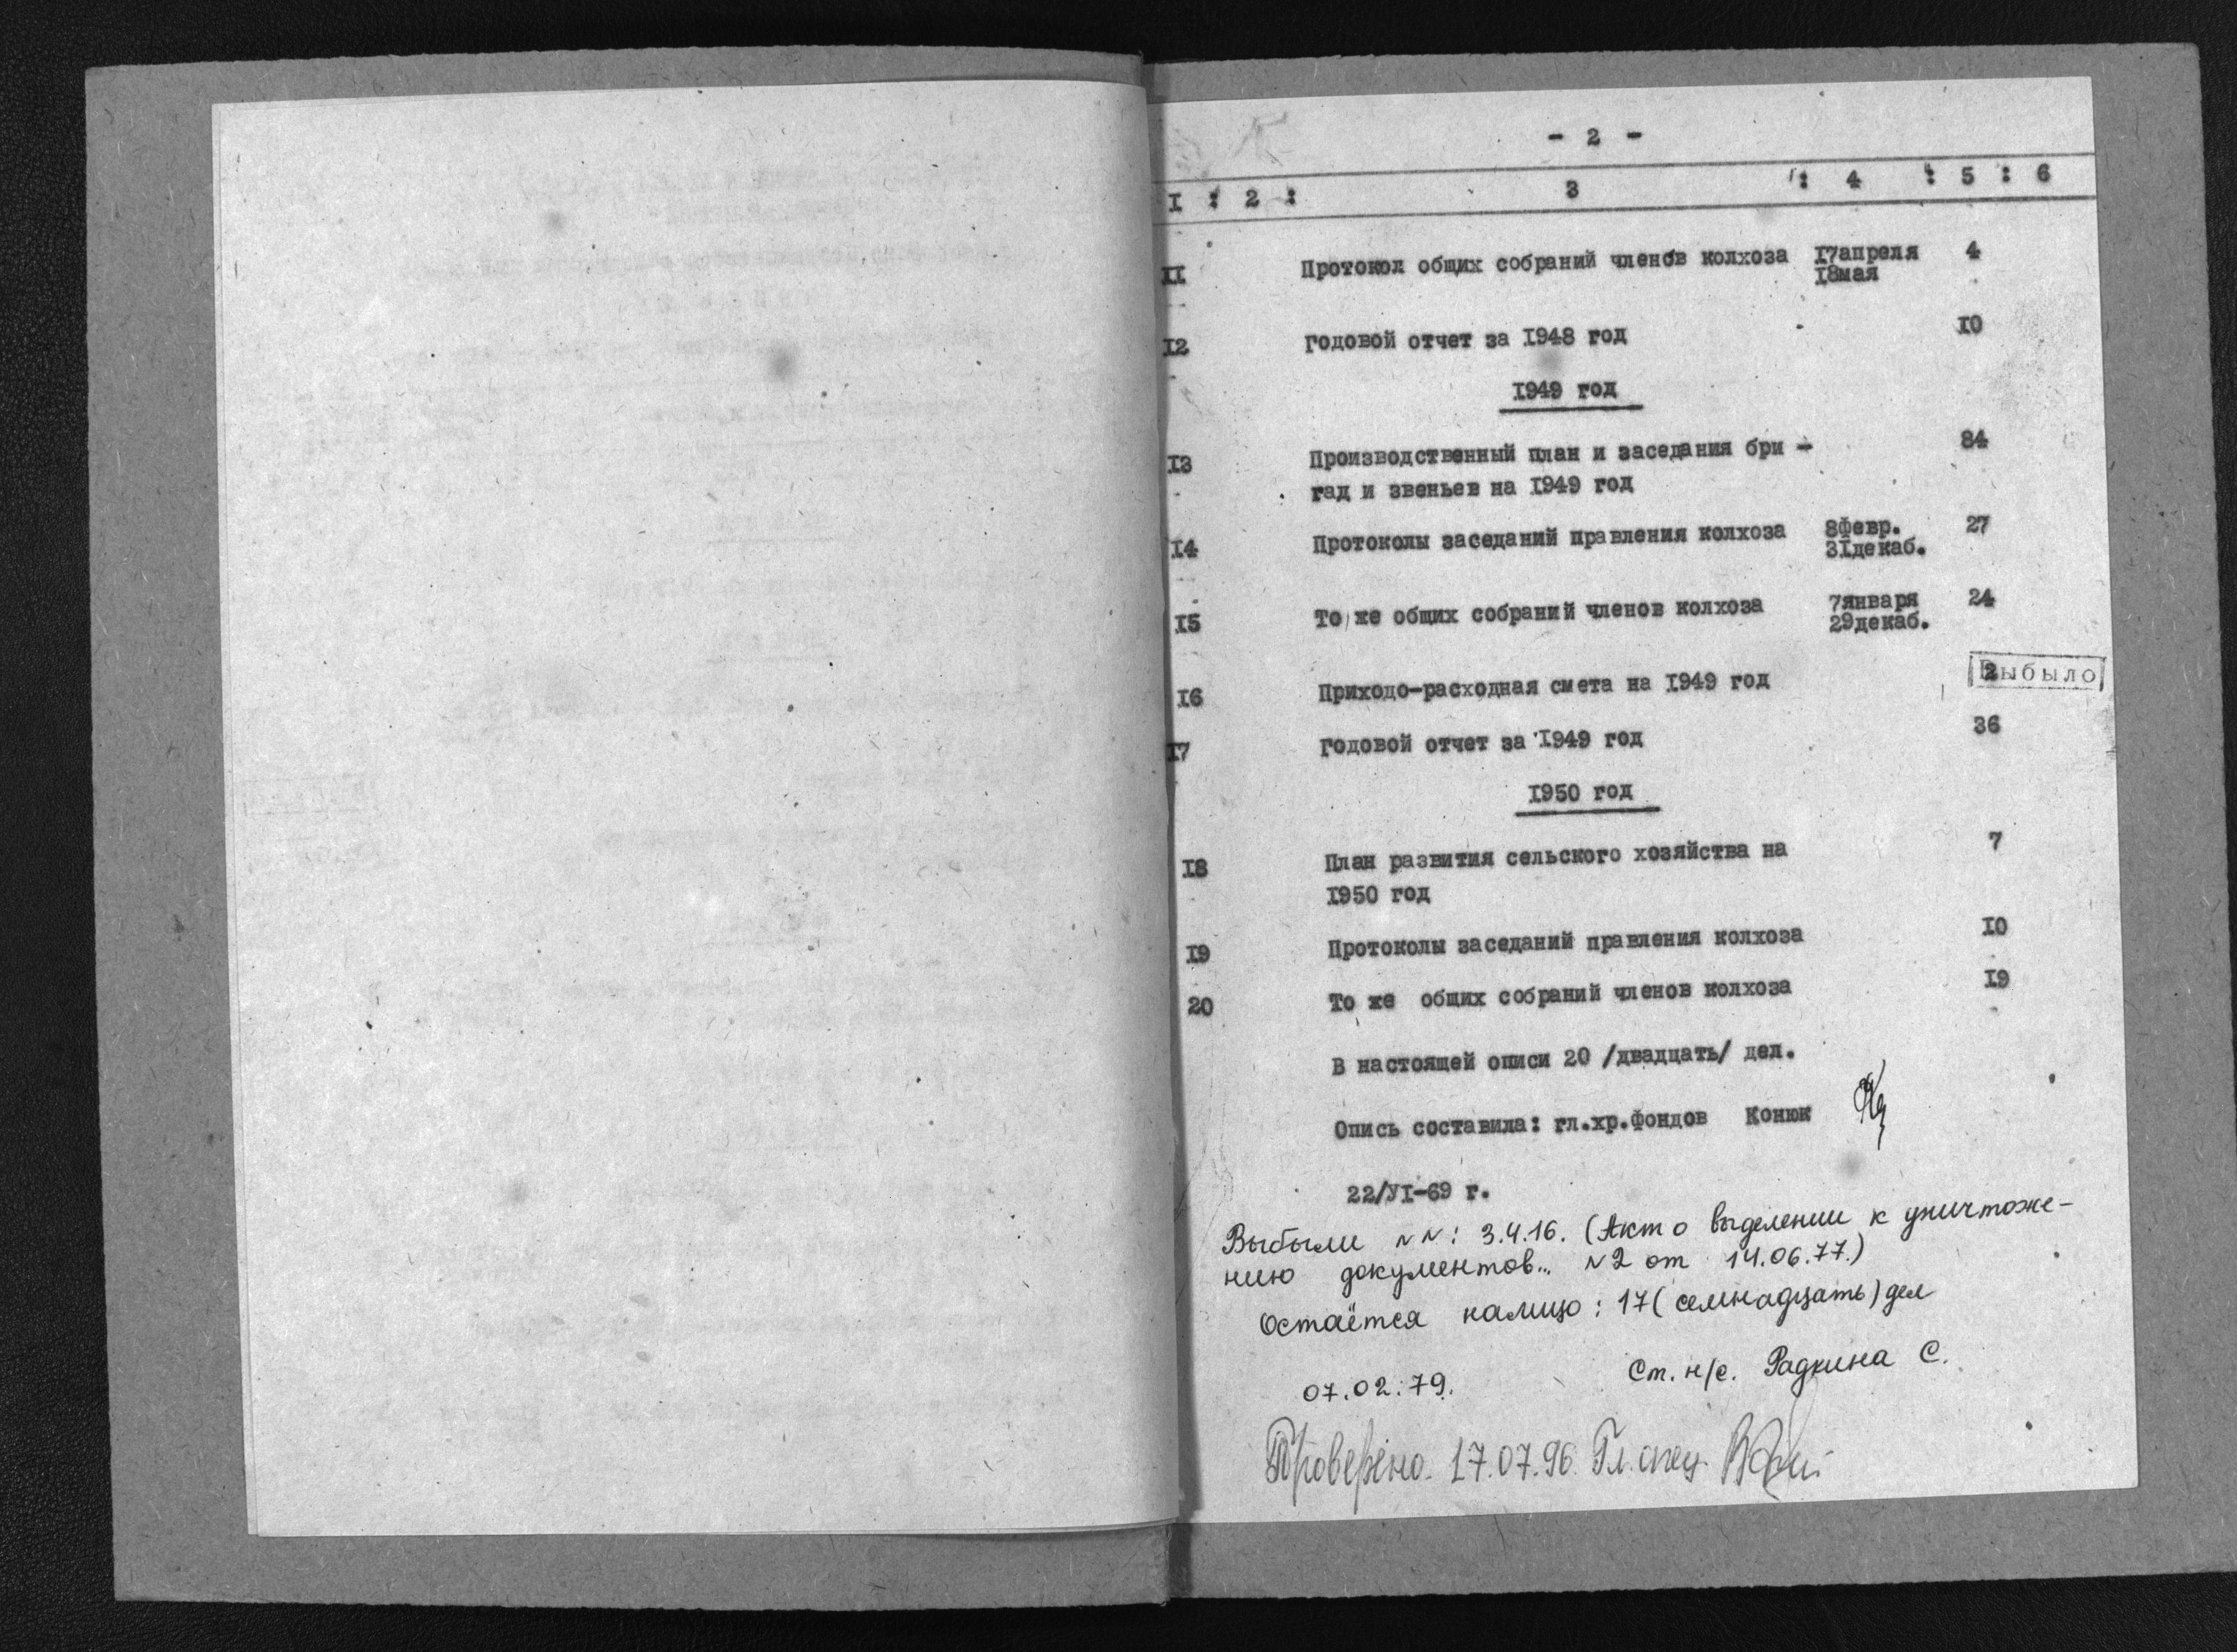 - 2 -
I : 2 : 3 : 4 : 5 : 6
II Протокол общих собраний членов колхоза 17апреля 4
18мая
I2 Годовой отчет за I948 год IO
I949 год
I3 Производственный план и заседания бри - 84
гад и звеньев на I949 год
I4 Протоколы заседаний правления колхоза 8февр. 27
3Iдекаб.
I5 То же общих собраний членов колхоза 7января 24
29декаб.
I6 Приходо-расходная смета на I949 год 2 Выбыло
I7 Годовой отчет за I949 год 36
I950 год
I8 План развития сельского хозяйства на 7
I950 год
I9 Протоколы заседаний правления колхоза IO
20 То же общих собраний членов колхоза I9
В настоящей описи 20 /двадцать/ дел.
Опись составила: гл.хр.фондов Конюк
22/УI-69 г.
Выбыли NN: 3.4.16. (Акт о выделении к уничтоже-
нию документов... N2 от 14.06.77.)
Остаётся налицо: 17 (семнадцать) дел
07.02.79. Ст. н/с. Радкина С.
Проверено. 17.07.96. Гл. спец.